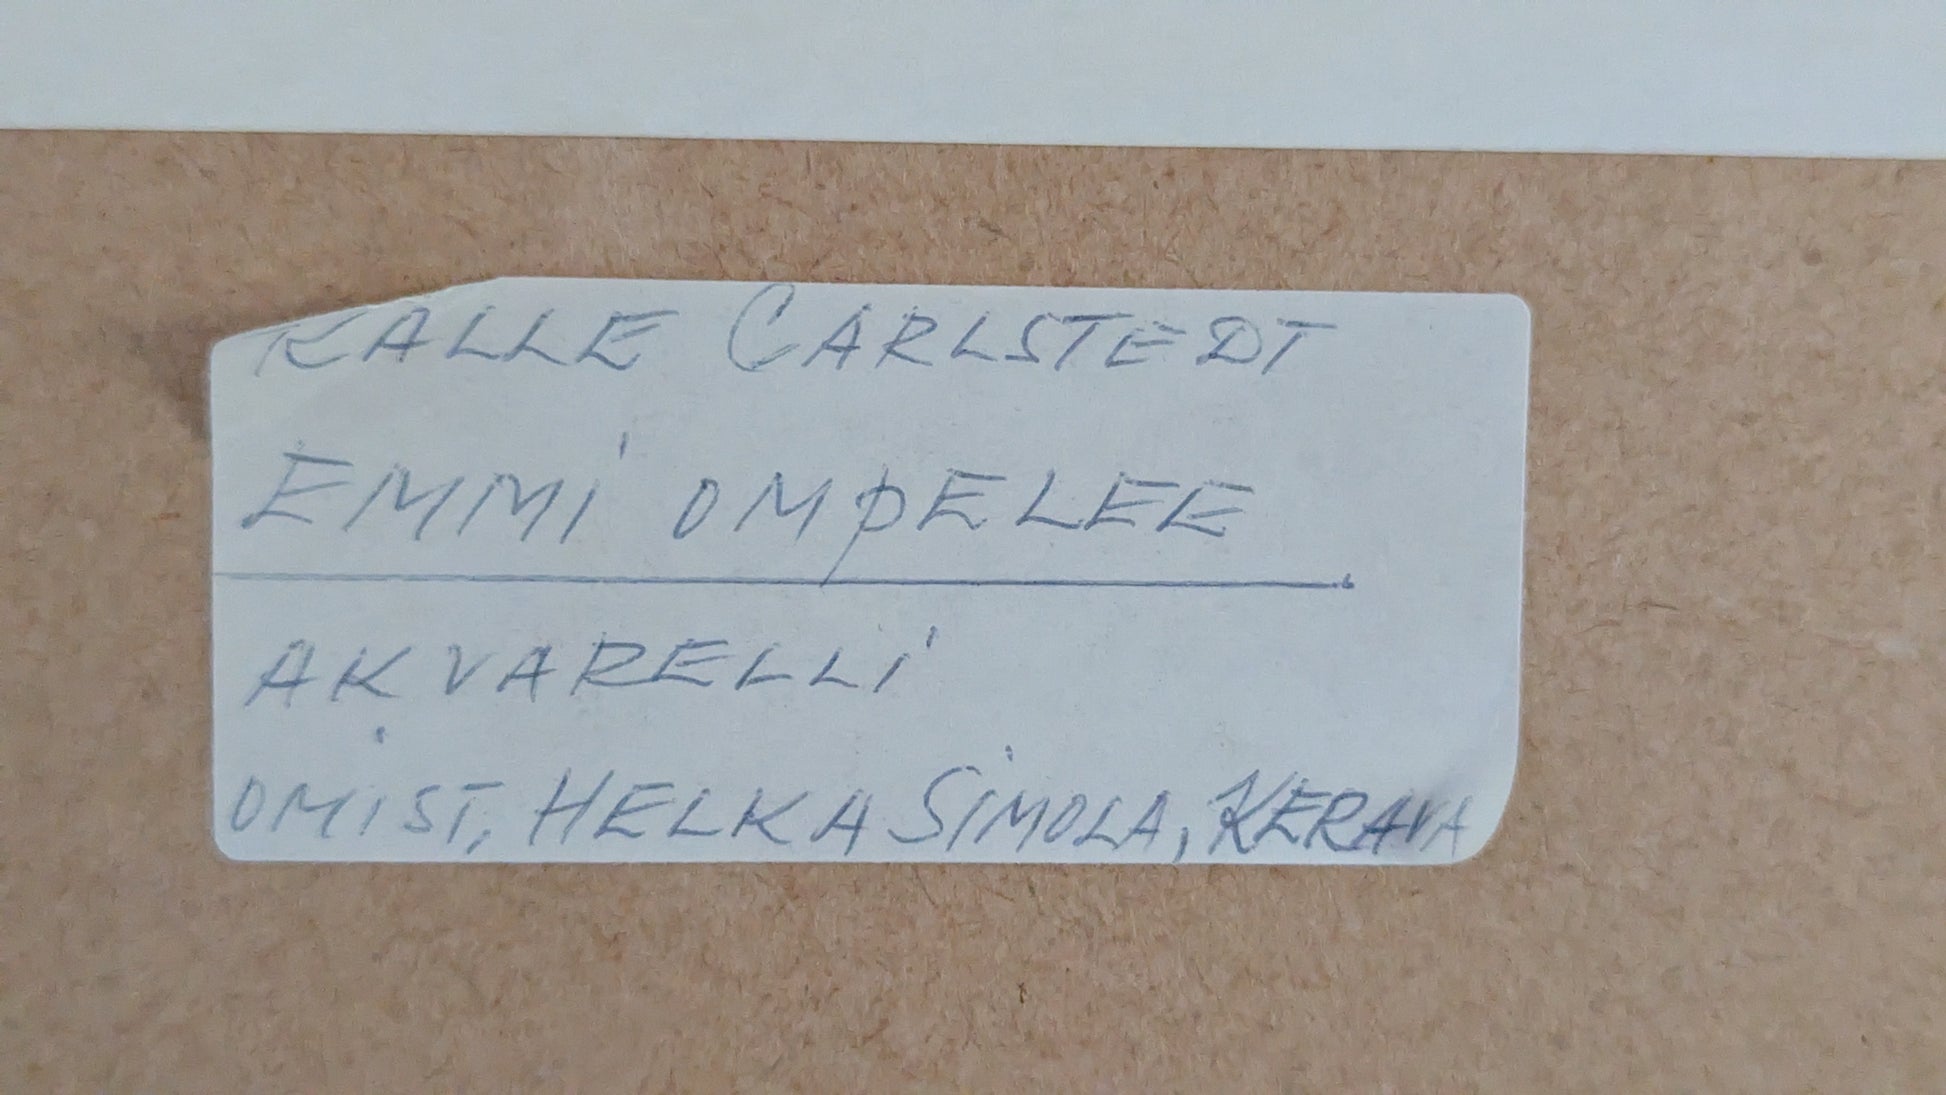 KALLE CARLSTEDT
EMMI OMPELEE
AKVARELLI
OMIST, HELKA SIMOLA, KERAVA